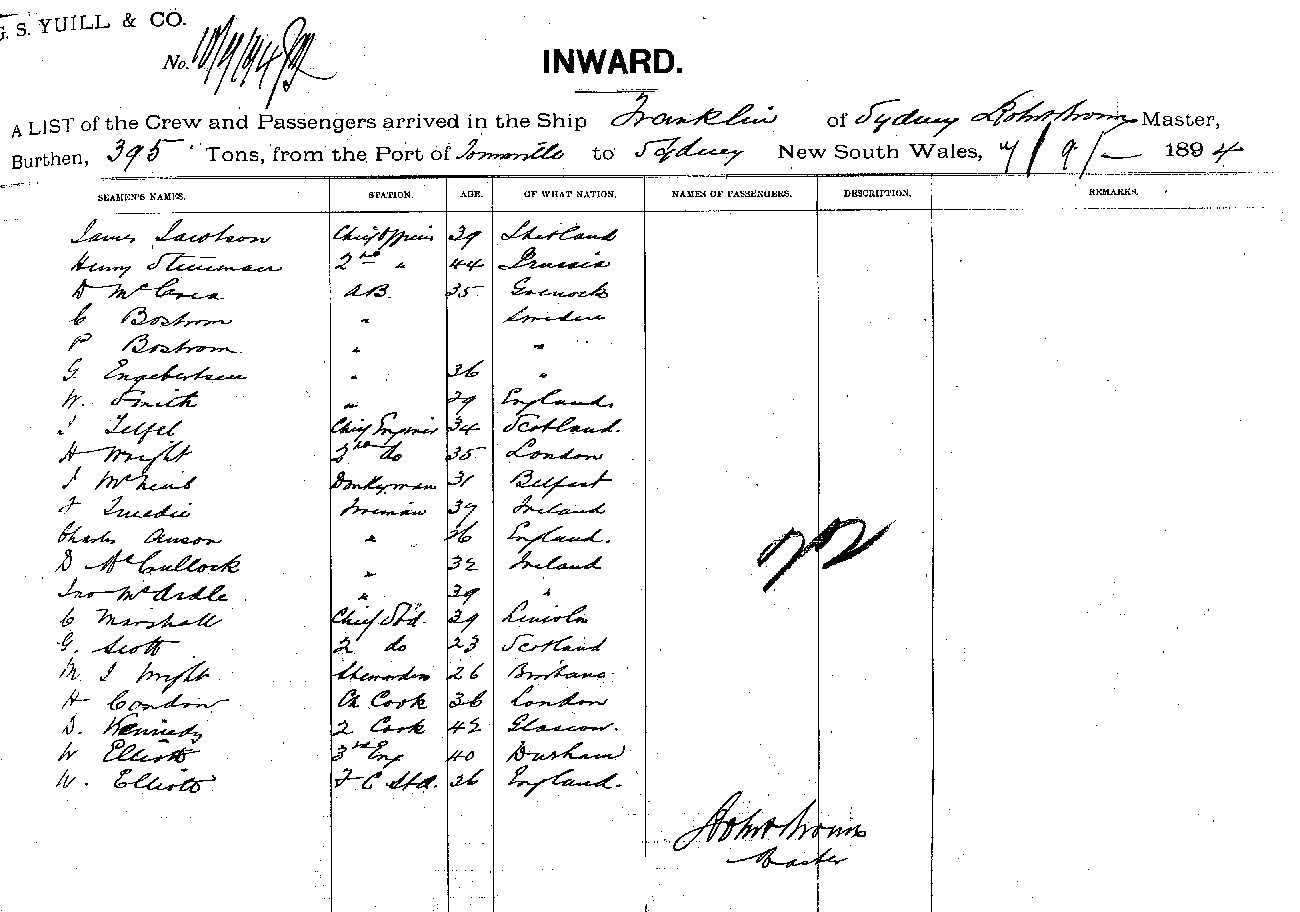 G. S. YUILL & CO.
No.
INWARD.
A LIST of the Crew and Passengers arrived in the Ship Franklin of Sydney Master,
Burthen, 395 Tons, from the Port of Townsville to Sydney New South Wales, 7/9/- 1894
SEAMEN'S NAMES. STATION. AGE. OF WHAT NATION. NAMES OF PASSENGERS. DESCRIPTION. REMARKS.
James Jacobson Chief Officer 39 Shetland
Henry 2nd " 44 Prussia
D McCrea A.B. 35 Greenock
C Bostrom " Sweden
P Bostrom " "
G. Engebertsen " 36 "
W. Smith " 29 England
J Telfel Chief Engineer 34 Scotland.
H Wright 2nd do 35 London
J McNeil Donkyman 31 Belfast
J Tweedie Fireman 37 Ireland
Charles Anson " 26 England.
D McCullock " 32 Ireland
Jno McArdle " 39 "
C Marshall Chief Std. 39 Lincoln
G. Scott 2 do 23 Scotland
M. J Wright Stewardess 26 Brisbane
H Condon Ch Cook 36 London
D. Kennedy 2 Cook 42 Glasgow.
W Elliott 3rd Eng 40 Durham
W. Elliott F C Std. 26 England.
Master